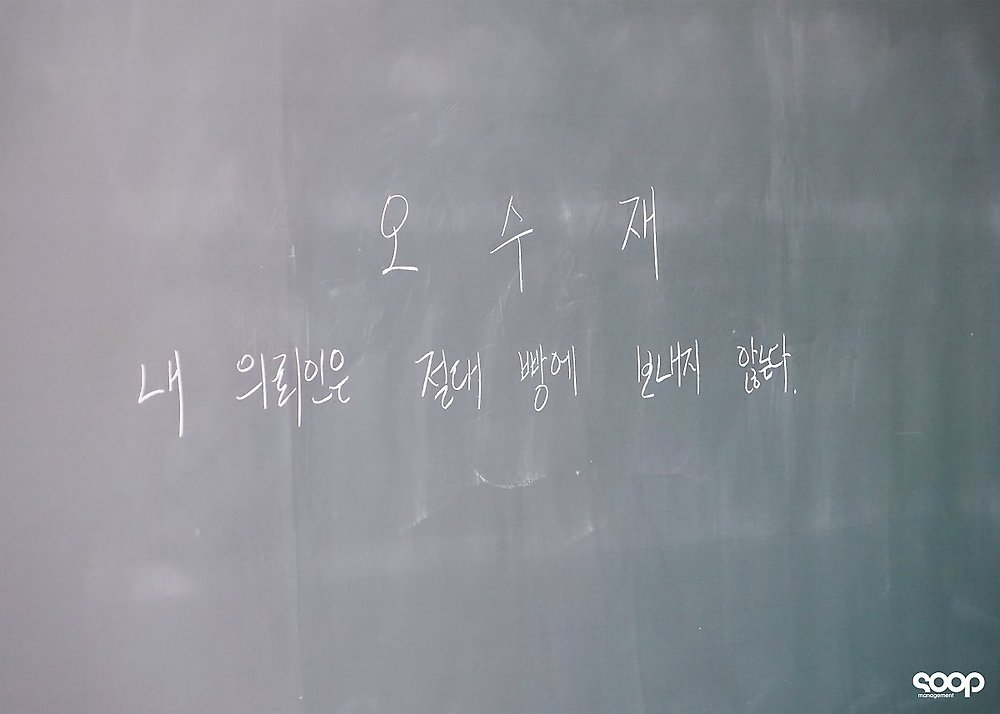 오 수 재
내 의뢰인은 절대 빵에 보내지 않는다.
soop
management